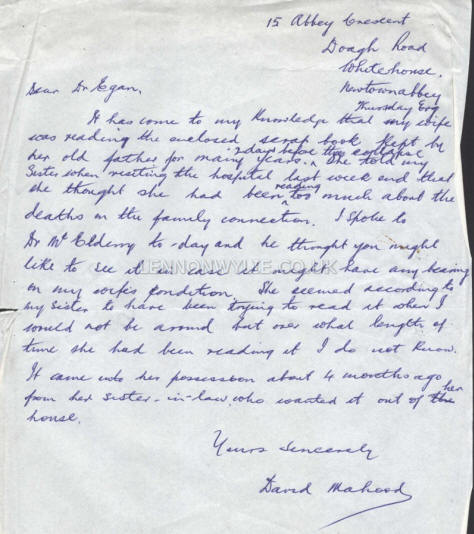 15 Abbey Crescent
Doagh Road
Whitehouse,
Newtownabbey
Thursday Evg
Dear Dr Egan,
It has come to my Knowledge that my wife
was reading the enclosed scrap book Kept by
her old father for many years. She told my
2 days before this
Sister when visiting the hospital last week end that
she thought she had been reading too much about the
deaths in the family connection. I spoke to
Dr McElderry to-day and he thought you might
like to see it in case it might have any bearing
on my wife's condition. She seemed according to
my sister to have been trying to read it when I
would not be around but over what length of
time she had been reading it I do not know.
It came into her possession about 4 months ago
from her sister-in-law, who wanted it out of her
house.
Yours Sincerely
David Mahood
LENNONWYLIE.CO.UK